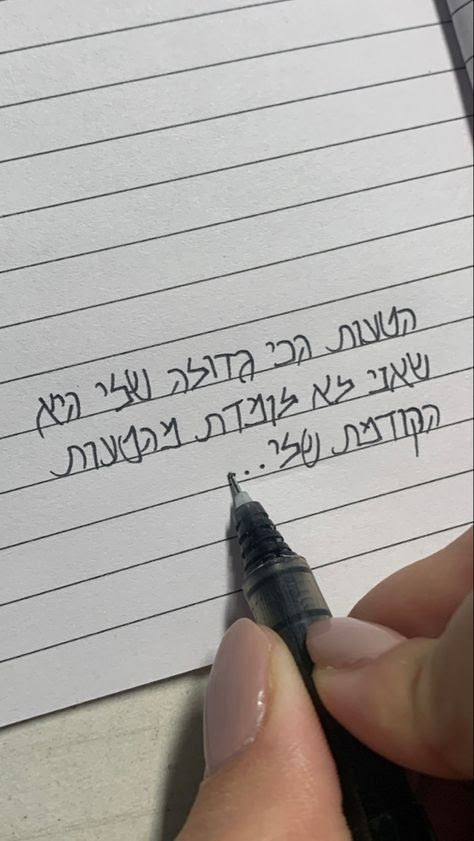 הטעות הכי גדולה שלי היא
שאני לא לומדת מהטעות
הקודמת שלי...